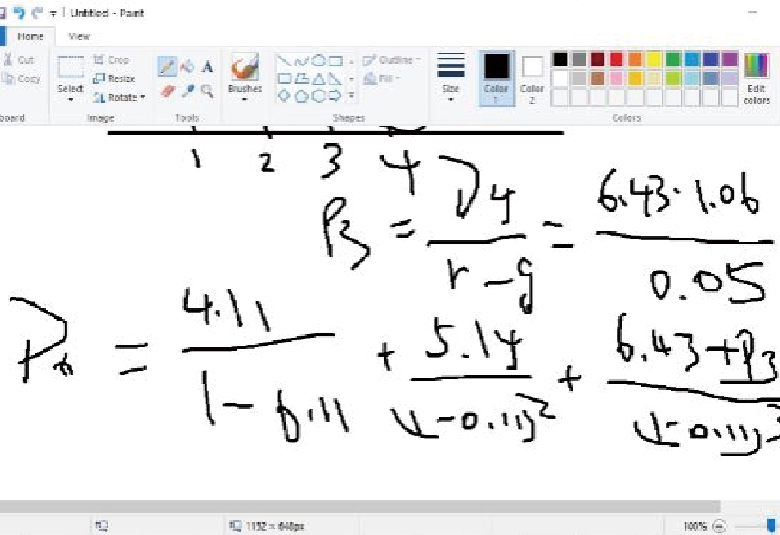 Untitled - Paint
Home View
Cut
Copy
Select
Crop
Resize
Rotate
A
Brushes
Outline
Fill
Size
Color 1
Color 2
Edit colors
Image
Tools
Shapes
Colors
1 2 3 4
P3 = D4 / r-g = 6.43·1.06 / 0.05
= 4.11 / 1-0.11 + 5.14 / (1-0.11)² + 6.43+P3 / (1-0.11)³
1152 × 648px
100%